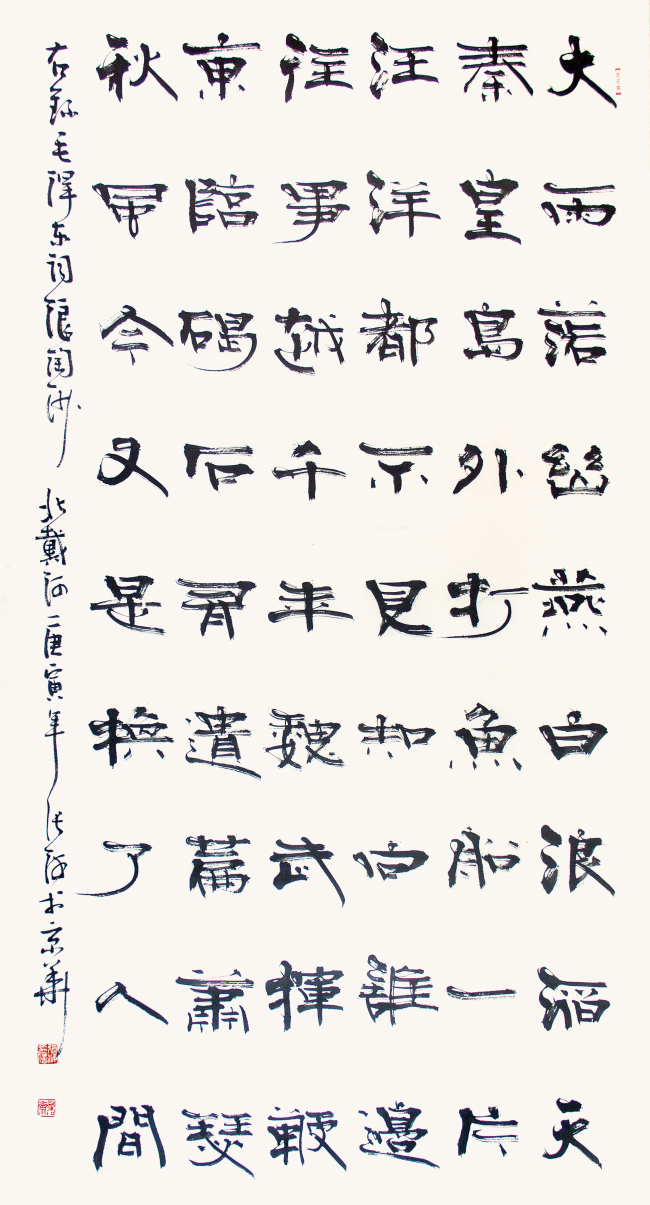 大雨落幽燕白浪滔天
秦皇島外打魚船一片
汪洋都不見知向誰邊
往事越千年魏武揮鞭
東臨碣石有遺篇蕭瑟
秋風今又是換了人間
右錄毛澤东詞浪淘沙 北戴河 庚寅年 张 於京華